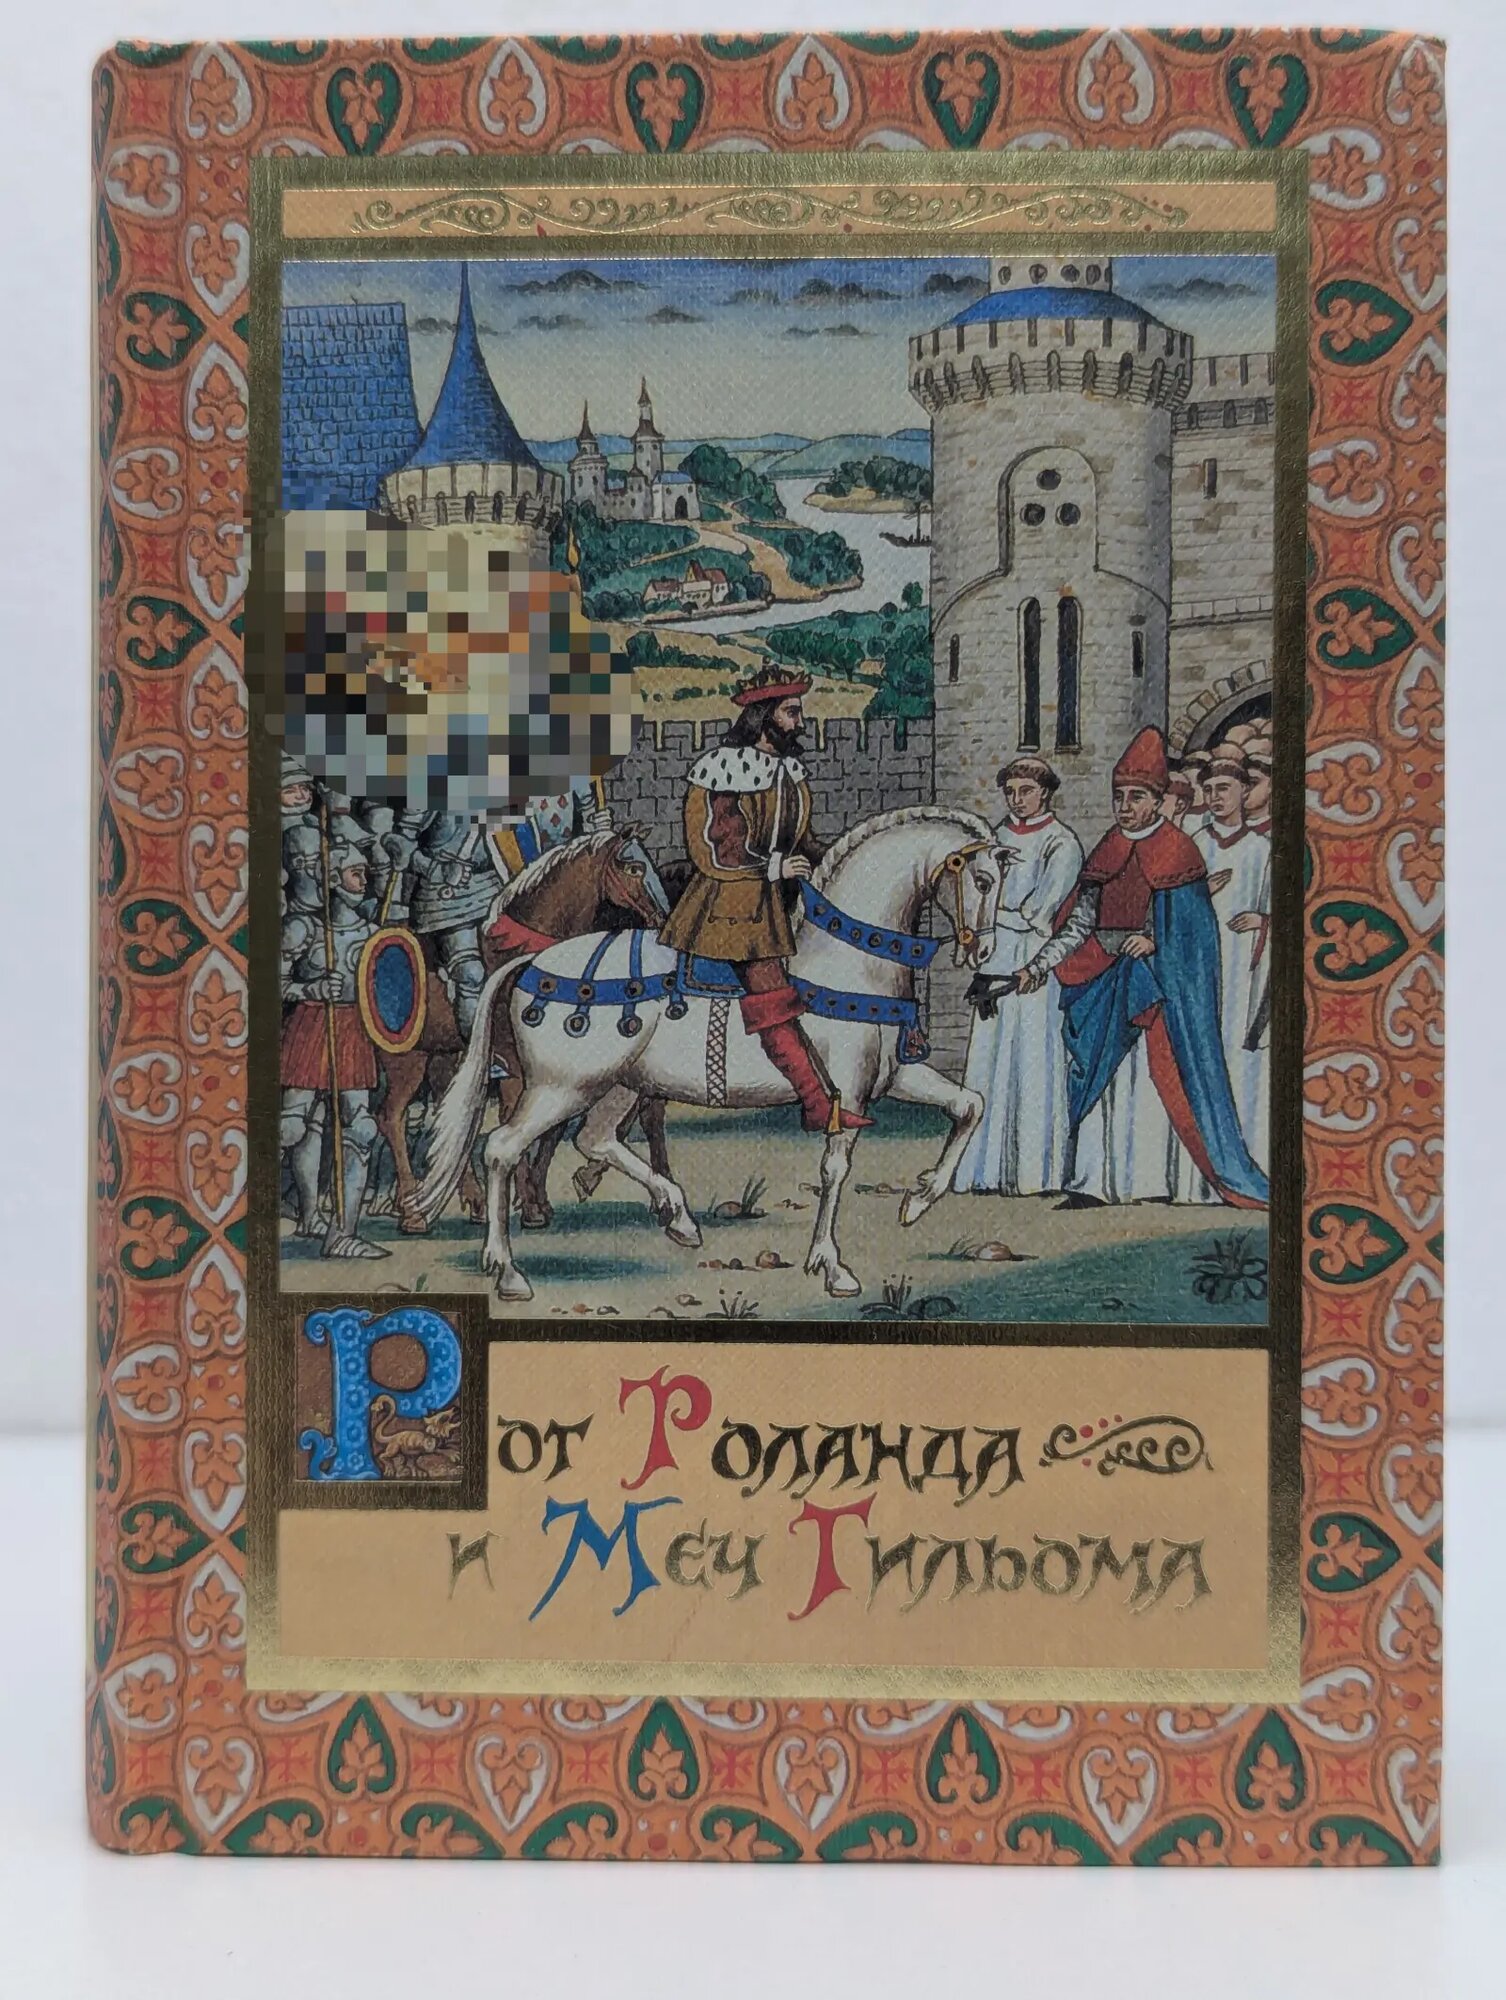 Рог Роланда
и Меч Гильома